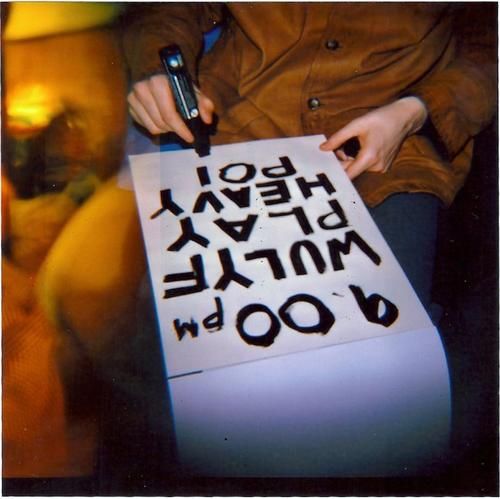 9.00 PM
WU LYF
PLAY
HEAVY
POI